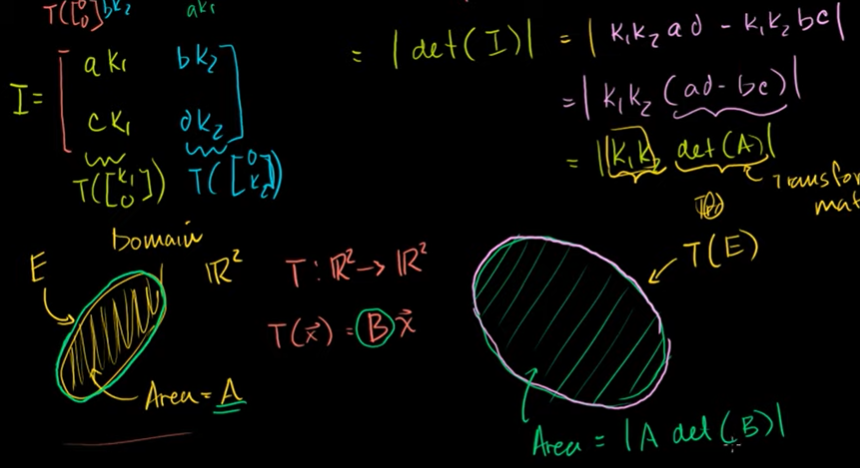 T([0 0] bk₂ ak₁
I = [ak₁ bk₂
ck₁ dk₂]
T([k₁ 0]) T([0 k₂])
= |det(I)| = |k₁k₂ad - k₁k₂bc|
= |k₁k₂(ad-bc)|
= |k₁k₂ det(A)|
Transfor
mat
E
Domain
ℝ²
Area = A
T: ℝ² → ℝ²
T(x⃗) = Bx⃗
T(E)
Area = |A det(B)|